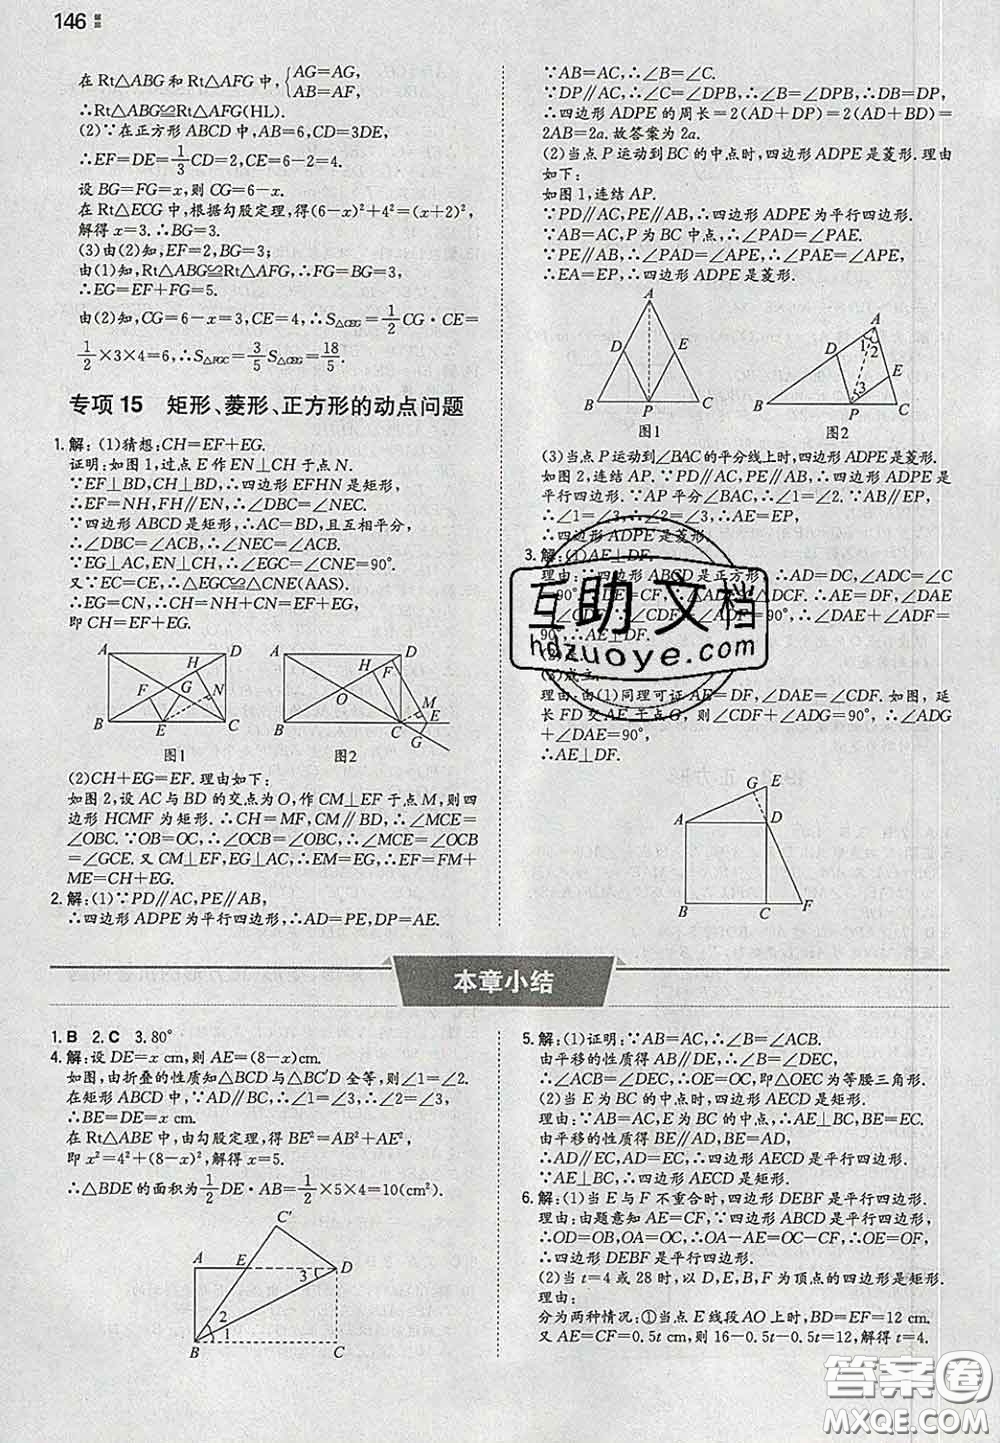 146
在Rt△ABG和Rt△AFG中,{AG=AG,
AB=AF,
∴Rt△ABG≌Rt△AFG(HL).
(2)∵在正方形ABCD中,AB=6,CD=3DE,
∴EF=DE=1/3CD=2,CE=6-2=4.
设BG=FG=x,则CG=6-x.
在Rt△ECG中,根据勾股定理,得(6-x)²+4²=(x+2)²,
解得x=3.∴BG=3.
(3)由(2)知,EF=2,BG=3;
由(1)知,Rt△ABG≌Rt△AFG,∴FG=BG=3,
∴EG=EF+FG=5.
由(2)知,CG=6-x=3,CE=4,∴S△CEG=1/2CG·CE=
1/2×3×4=6,∴S△FGC=3/5S△CEG=18/5.
专项15 矩形、菱形、正方形的动点问题
1.解:(1)猜想:CH=EF+EG.
证明:如图1,过点E作EN⊥CH于点N.
∵EF⊥BD,CH⊥BD,∴四边形EFHN是矩形,
∴EF=NH,FH∥EN,∴∠DBC=∠NEC.
∵四边形ABCD是矩形,∴AC=BD,且互相平分,
∴∠DBC=∠ACB,∴∠NEC=∠ACB.
∵EG⊥AC,EN⊥CH,∴∠EGC=∠CNE=90°.
又∵EC=CE,∴△EGC≌△CNE(AAS).
∴EG=CN,∴CH=NH+CN=EF+EG,
即CH=EF+EG.
A D H F G N B E C
图1
A D H F O M B C E G
图2
(2)CH+EG=EF.理由如下:
如图2,设AC与BD的交点为O,作CM⊥EF于点M,则四
边形HCMF为矩形.∴CH=MF,CM∥BD,∴∠MCE=
∠OBC.∵OB=OC,∴∠OCB=∠OBC,∴∠MCE=∠OCB
=∠GCE.又CM⊥EF,EG⊥CG,∴ME=EG,∴EF=FM+
ME=CH+EG.
2.解:(1)∵PD∥AC,PE∥AB,
∴四边形ADPE为平行四边形,∴AD=PE,DP=AE.
∵AB=AC,∴∠B=∠C.
∵DP∥AC,∴∠C=∠DPB,∴∠B=∠DPB,∴DB=DP,
∴四边形ADPE的周长=2(AD+DP)=2(AD+BD)=
2AB=2a.故答案为2a.
(2)当点P运动到BC的中点时,四边形ADPE是菱形.理由
如下:
如图1,连结AP.
∵PD∥AC,PE∥AB,∴四边形ADPE为平行四边形.
∵AB=AC,P为BC中点,∴∠PAD=∠PAE.
∵PE∥AB,∴∠PAD=∠APE,∴∠PAE=∠APE,
∴EA=EP,∴四边形ADPE是菱形.
A D E B P C
图1
A 1 2 D E 3 B P C
图2
(3)当点P运动到∠BAC的平分线上时,四边形ADPE是菱形.
如图2,连结AP.∵PD∥AC,PE∥AB,∴四边形ADPE是
平行四边形.∵AP平分∠BAC,∴∠1=∠2.∵AB∥EP,
∴∠1=∠3,∴∠2=∠3,∴AE=EP,
∴四边形ADPE是菱形.
3.解:(1)AE⊥DF,
理由:∵四边形ABCD是正方形,∴AD=DC,∠ADC=∠C
=90°.∵DE=CF,∴△ADE≌△DCF.∴AE=DF,∠DAE
=∠CDF.∵∠CDF+∠ADF=90°,∴∠DAE+∠ADF=
90°.∴AE⊥DF.
(2)是.
(3)成立.
理由:由(1)同理可证AE=DF,∠DAE=∠CDF.如图,延
长FD交AE于点G,则∠CDF+∠ADG=90°,∴∠ADG
+∠DAE=90°.
∴AE⊥DF.
G E A D B C F
互助文档
hdzuoye.com
本章小结
1.B 2.C 3.80°
4.解:设DE=x cm,则AE=(8-x)cm.
如图,由折叠的性质知△BCD与△BC′D全等,则∠1=∠2.
在矩形ABCD中,∵AD∥BC,∴∠1=∠3,∴∠2=∠3,
∴BE=DE=x cm.
在Rt△ABE中,由勾股定理,得BE²=AB²+AE²,
即x²=4²+(8-x)²,解得x=5.
∴△BDE的面积为1/2DE·AB=1/2×5×4=10(cm²).
C′ A E D 3 2 1 B C
5.解:(1)证明:∵AB=AC,∴∠B=∠ACB.
由平移的性质得AB∥DE,∴∠B=∠DEC,
∴∠ACB=∠DEC,∴OE=OC,即△OEC为等腰三角形.
(2)当E为BC的中点时,四边形AECD是矩形.
理由:∵AB=AC,E为BC的中点,∴AE⊥BC,BE=EC.
由平移的性质得BE∥AD,BE=AD,
∴AD∥EC,AD=EC,∴四边形AECD是平行四边形.
∵AE⊥BC,∴四边形AECD是矩形.
6.解:(1)当E与F不重合时,四边形DEBF是平行四边形.
理由:由题意知AE=CF,∵四边形ABCD是平行四边形,
∴OD=OB,OA=OC,∴OA-AE=OC-CF,∴OE=OF,
∴四边形DEBF是平行四边形.
(2)当t=4或28时,以D,E,B,F为顶点的四边形是矩形.
理由:
分为两种情况:①当点E线段AO上时,BD=EF=12 cm.
又AE=CF=0.5t cm,则16-0.5t-0.5t=12,解得t=4.
答案圈
MXQE.COM